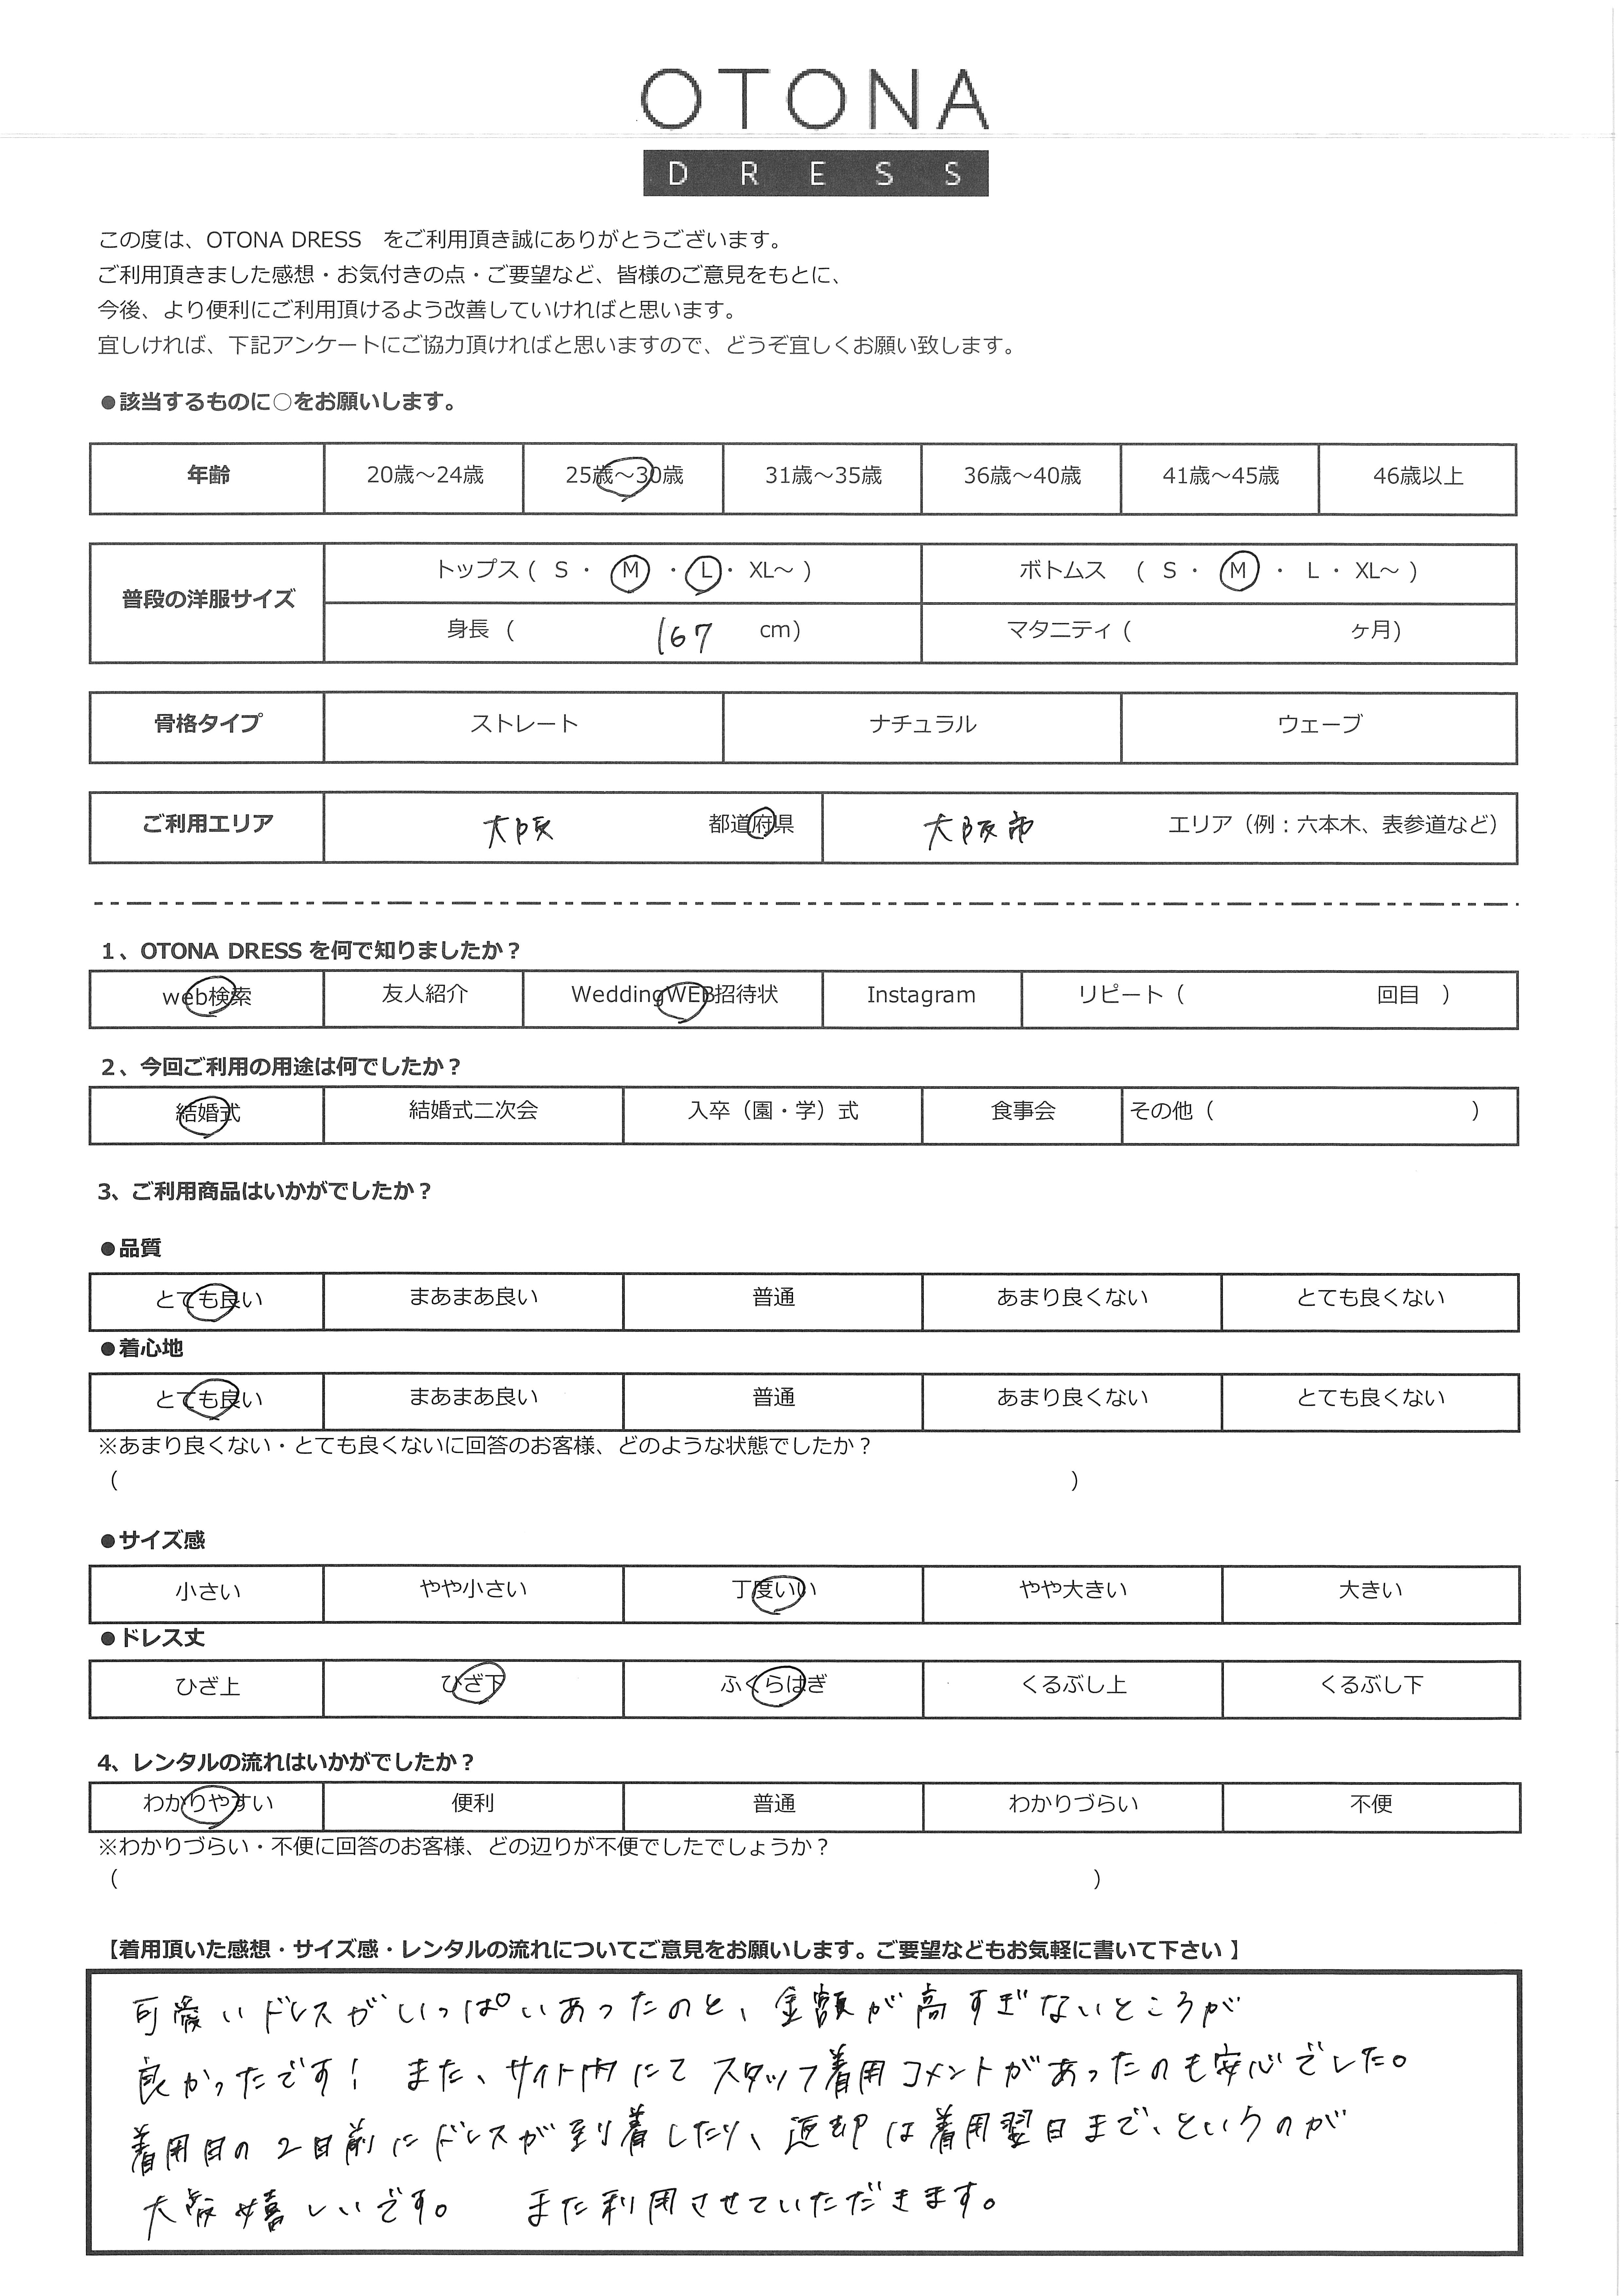 OTONA
DRESS
この度は、OTONA DRESS をご利用頂き誠にありがとうございます。
ご利用頂きました感想・お気付きの点・ご要望など、皆様のご意見をもとに、
今後、より便利にご利用頂けるよう改善していければと思います。
宜しければ、下記アンケートにご協力頂ければと思いますので、どうぞ宜しくお願い致します。
●該当するものに○をお願いします。
年齢 20歳～24歳 25歳～30歳 31歳～35歳 36歳～40歳 41歳～45歳 46歳以上
普段の洋服サイズ トップス ( S ・ M ・ L ・ XL～ ) ボトムス ( S ・ M ・ L ・ XL～ )
身長 ( 167 cm) マタニティ ( ヶ月)
骨格タイプ ストレート ナチュラル ウェーブ
ご利用エリア 大阪 都道府県 大阪市 エリア（例：六本木、表参道など）
1、OTONA DRESS を何で知りましたか？
web検索 友人紹介 WeddingWEB招待状 Instagram リピート（ 回目 ）
2、今回ご利用の用途は何でしたか？
結婚式 結婚式二次会 入卒（園・学）式 食事会 その他（ ）
3、ご利用商品はいかがでしたか？
●品質
とても良い まあまあ良い 普通 あまり良くない とても良くない
●着心地
とても良い まあまあ良い 普通 あまり良くない とても良くない
※あまり良くない・とても良くないに回答のお客様、どのような状態でしたか？
（ ）
●サイズ感
小さい やや小さい 丁度いい やや大きい 大きい
●ドレス丈
ひざ上 ひざ下 ふくらはぎ くるぶし上 くるぶし下
4、レンタルの流れはいかがでしたか？
わかりやすい 便利 普通 わかりづらい 不便
※わかりづらい・不便に回答のお客様、どの辺りが不便でしたでしょうか？
（ ）
【着用頂いた感想・サイズ感・レンタルの流れについてご意見をお願いします。ご要望などもお気軽に書いて下さい】
可愛いドレスがいっぱいあったのと、金額が高すぎないところが
良かったです！ また、サイト内にてスタッフ着用コメントがあったのも安心でした。
着用日の2日前にドレスが到着したり、返却は着用翌日まで、というのが
大変嬉しいです。 また利用させていただきます。